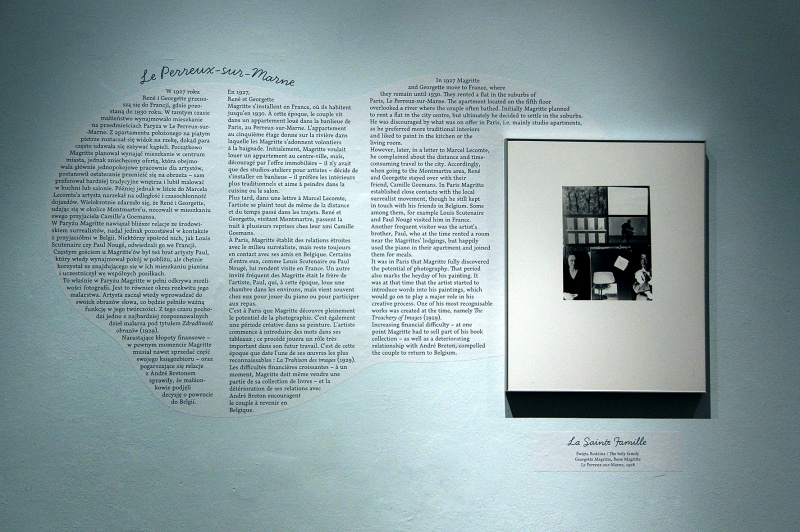 Le Perreux-sur-Marne
W 1927 roku
René i Georgette przeno-
szą się do Francji, gdzie pozo-
staną do 1930 roku. W tamtym czasie
małżeństwo wynajmowało mieszkanie
na przedmieściach Paryża w Le Perreux-sur-
-Marne. Z apartamentu położonego na piątym
piętrze roztaczał się widok na rzekę, dokąd para
często udawała się zażywać kąpieli. Początkowo
Magritte planował wynająć mieszkanie w centrum
miasta, jednak zniechęcony ofertą, która obejmo-
wała głównie jednopokojowe pracownie dla artystów,
postanowił ostatecznie przenieść się na obrzeża – sam
preferował bardziej tradycyjne wnętrza i lubił malować
w kuchni lub salonie. Później jednak w liście do Marcela
Lecomte'a artysta narzekał na odległość i czasochłonność
dojazdów. Wielokrotnie zdarzało się, że René i Georgette,
udając się w okolice Montmartre'u, nocowali w mieszkaniu
swego przyjaciela Camille'a Goemansa.
W Paryżu Magritte nawiązał bliższe relacje ze środowi-
skiem surrealistów, nadal jednak pozostawał w kontakcie
z przyjaciółmi w Belgii. Niektórzy spośród nich, jak Louis
Scutenaire czy Paul Nougé, odwiedzali go we Francji.
Częstym gościem u Magritte'ów był też brat artysty Paul,
który wtedy wynajmował pokój w pobliżu, ale chętnie
korzystał ze znajdującego się w ich mieszkaniu pianina
i uczestniczył we wspólnych posiłkach.
To właśnie w Paryżu Magritte w pełni odkrywa możli-
wości fotografii. Jest to również okres rozkwitu jego
malarstwa. Artysta zaczął wtedy wprowadzać do
swoich obrazów słowa, co będzie pełniło ważną
funkcję w jego twórczości. Z tego czasu pocho-
dzi jedno z najbardziej rozpoznawalnych
dzieł malarza pod tytułem Zdradliwość
obrazów (1929).
Narastające kłopoty finansowe –
w pewnym momencie Magritte
musiał nawet sprzedać część
swojego księgozbioru – oraz
pogarszające się relacje
z André Bretonem
sprawiły, że małżon-
kowie podjęli
decyzję o powrocie
do Belgii.
En 1927,
René et Georgette
Magritte s'installent en France, où ils habitent
jusqu'en 1930. À cette époque, le couple vit
dans un appartement loué dans la banlieue de
Paris, au Perreux-sur-Marne. L'appartement
au cinquième étage donne sur la rivière dans
laquelle les Magritte s'adonnent volontiers
à la baignade. Initialement, Magritte voulait
louer un appartement au centre-ville, mais,
découragé par l'offre immobilière – il n'y avait
que des studios-ateliers pour artistes – décide de
s'installer en banlieue – il préfère les intérieurs
plus traditionnels et aime à peindre dans la
cuisine ou le salon.
Plus tard, dans une lettre à Marcel Lecomte,
l'artiste se plaint tout de même de la distance
et du temps passé dans les trajets. René et
Georgette, visitant Montmartre, passent la
nuit à plusieurs reprises chez leur ami Camille
Goemans.
À Paris, Magritte établit des relations étroites
avec le milieu surréaliste, mais reste toujours
en contact avec ses amis en Belgique. Certains
d'entre eux, comme Louis Scutenaire ou Paul
Nougé, lui rendent visite en France. Un autre
invité fréquent des Magritte était le frère de
l'artiste, Paul, qui, à cette époque, loue une
chambre dans les environs, mais vient souvent
chez eux pour jouer du piano ou pour participer
aux repas.
C'est à Paris que Magritte découvre pleinement
le potentiel de la photographie. C'est également
une période créative dans sa peinture. L'artiste
commence à introduire des mots dans ses
tableaux ; ce procédé jouera un rôle très
important dans son futur travail. C'est de cette
époque que date l'une de ses œuvres les plus
reconnaissables : La Trahison des images (1929).
Les difficultés financières croissantes – à un
moment, Magritte doit même vendre une
partie de sa collection de livres – et la
détérioration de ses relations avec
André Breton encouragent
le couple à revenir en
Belgique.
In 1927 Magritte
and Georgette move to France, where
they remain until 1930. They rented a flat in the suburbs of
Paris, Le Perreux-sur-Marne. The apartment located on the fifth floor
overlooked a river where the couple often bathed. Initially Magritte planned
to rent a flat in the city centre, but ultimately he decided to settle in the suburbs.
He was discouraged by what was on offer in Paris, i.e. mainly studio apartments,
as he preferred more traditional interiors
and liked to paint in the kitchen or the
living room.
However, later, in a letter to Marcel Lecomte,
he complained about the distance and time-
consuming travel to the city. Accordingly,
when going to the Montmartre area, René
and Georgette stayed over with their
friend, Camille Goemans. In Paris Magritte
established close contacts with the local
surrealist movement, though he still kept
in touch with his friends in Belgium. Some
among them, for example Louis Scutenaire
and Paul Nougé visited him in France.
Another frequent visitor was the artist's
brother, Paul, who at the time rented a room
near the Magrittes' lodgings, but happily
used the piano in their apartment and joined
them for meals.
It was in Paris that Magritte fully discovered
the potential of photography. That period
also marks the heyday of his painting. It
was at that time that the artist started to
introduce words into his paintings, which
would go on to play a major role in his
creative process. One of his most recognisable
works was created at the time, namely The
Treachery of Images (1929).
Increasing financial difficulty – at one
point Magritte had to sell part of his book
collection – as well as a deteriorating
relationship with André Breton, compelled
the couple to return to Belgium.
La Sainte Famille
Święta Rodzina / The holy family
Georgette Magritte, René Magritte
Le Perreux-sur-Marne, 1928